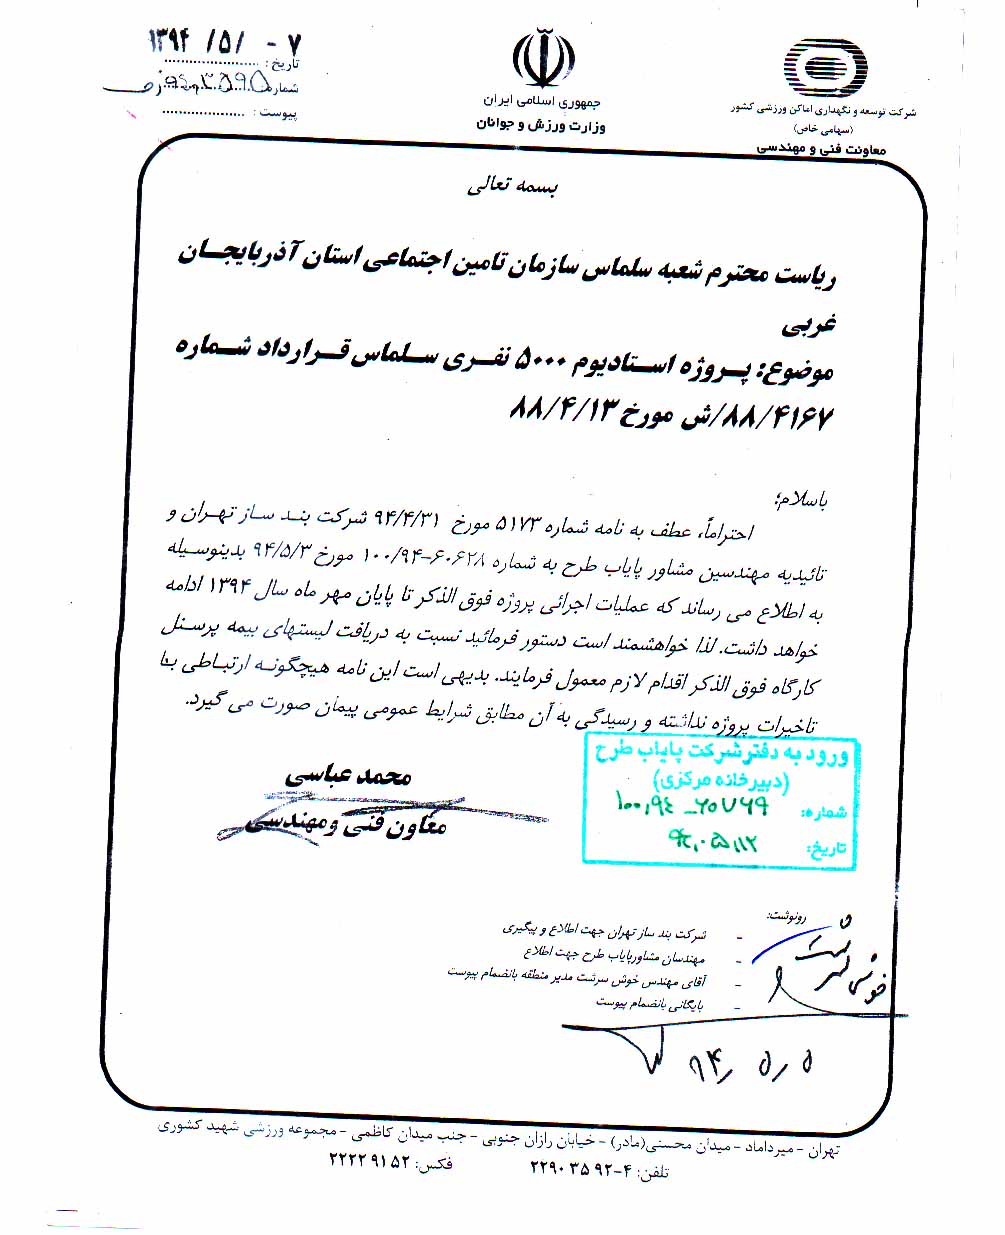 ۱۳۹۴ /۵/ -۷
تاریخ :
شماره
پیوست :
جمهوری اسلامی ایران
وزارت ورزش و جوانان
شرکت توسعه و نگهداری اماکن ورزشی کشور
(سهامی خاص)
معاونت فنی و مهندسی
بسمه تعالی
ریاست محترم شعبه سلماس سازمان تامین اجتماعی استان آذربایجان
غربی
موضوع: پروژه استادیوم ۵۰۰۰ نفری سلماس قرارداد شماره
۸۸/۴۱۶۷/ش مورخ ۸۸/۴/۱۳
باسلام؛
احتراماً، عطف به نامه شماره ۵۱۷۳ مورخ ۹۴/۴/۳۱ شرکت بند ساز تهران و
تائیدیه مهندسین مشاور پایاب طرح به شماره ۶۰۶۲۸-۱۰۰/۹۴ مورخ ۹۴/۵/۳ بدینوسیله
به اطلاع می رساند که عملیات اجرائی پروژه فوق الذکر تا پایان مهر ماه سال ۱۳۹۴ ادامه
خواهد داشت. لذا خواهشمند است دستور فرمائید نسبت به دریافت لیستهای بیمه پرسنل
کارگاه فوق الذکر اقدام لازم معمول فرمایند. بدیهی است این نامه هیچگونه ارتباطی با
تاخیرات پروژه نداشته و رسیدگی به آن مطابق شرایط عمومی پیمان صورت می گیرد.
محمد عباسی
معاون فنی و مهندسی
ورود به دفتر شرکت پایاب طرح
(دبیرخانه مرکزی)
شماره: ۱۰۰,۹۴ـ۶۰۷۶۹
تاریخ: ۹۴,۰۵,۱۲
رونوشت:
- شرکت بند ساز تهران جهت اطلاع و پیگیری
- مهندسان مشاور پایاب طرح جهت اطلاع
- آقای مهندس خوش سرشت مدیر منطقه بانضمام پیوست
- بایگانی بانضمام پیوست
۹۴٫ ۵٫۵
تهران - میرداماد - میدان محسنی(مادر) - خیابان رازان جنوبی - جنب میدان کاظمی - مجموعه ورزشی شهید کشوری
تلفن: ۴-۲۲۹۰۳۵۹۲ فکس: ۲۲۲۲۹۱۵۲